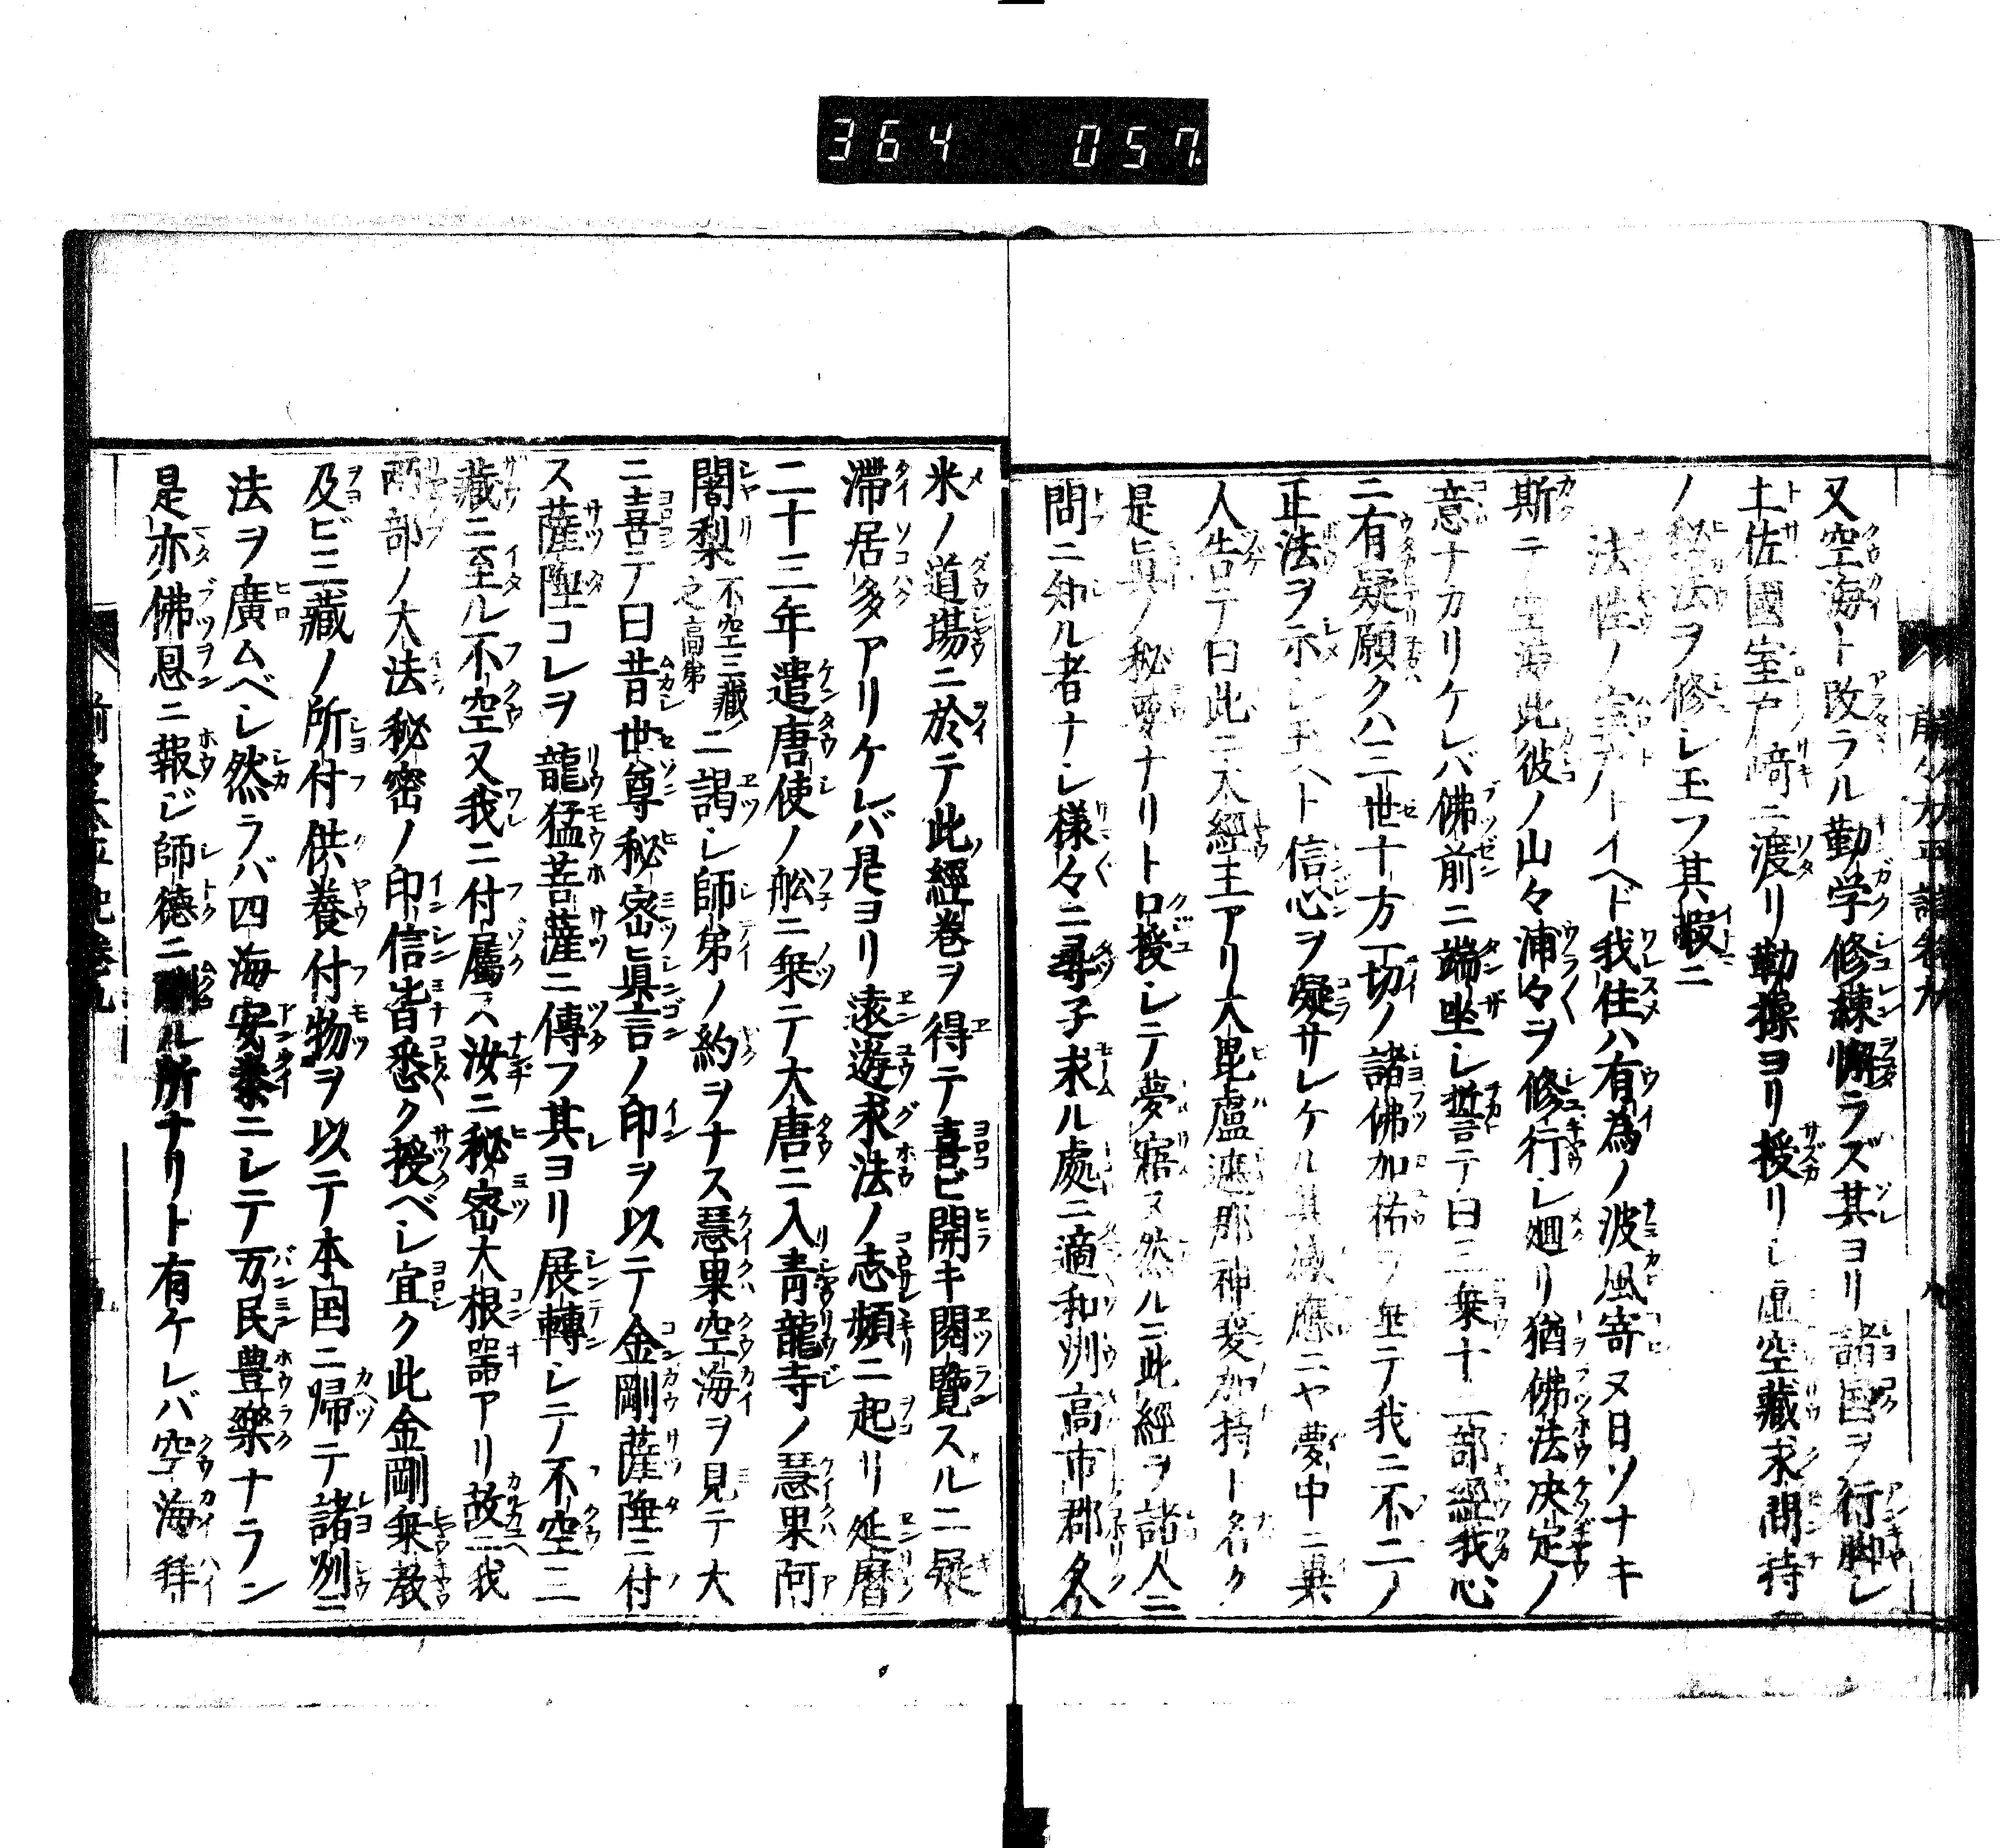 364 057
又空海ト改ラル勤学修練懈ラズ其ヨリ諸国ヲ行脚シ
土佐國室戸﨑ニ渡リ勤操ヨリ授リシ虚空藏求聞持
ノ秘法ヲ修シ玉フ其暇ニ
法性ノ室戸トイヘド我住ハ有為ノ波風寄ヌ日ソナキ
斯テ空海此彼ノ山々浦々ヲ修行シ廻リ猶佛法决定ノ
意ナカリケレバ佛前ニ端坐シ誓テ曰三乗十二部經我心
ニ有疑願クハ三世十方一切ノ諸佛加祐ヲ垂テ我ニ不二ノ
正法ヲ示シ玉ヘト信心ヲ凝サレケル其感應ニヤ夢中ニ異
人告テ曰此ニ大經王アリ大毘盧遮那神変加持ト名ク
是眞ノ秘要ナリト口授シテ夢寤ヌ然ルニ此經ヲ諸人ニ
問ニ知ル者ナシ様々ニ尋子求ル處ニ適和州高市郡久
米ノ道塲ニ於テ此經巻ヲ得テ喜ビ開キ閲覽スルニ疑
滞居多アリケレバ是ヨリ遠遊求法ノ志頻ニ起リ延暦
二十三年遣唐使ノ舩ニ乗テ大唐ニ入青龍寺ノ慧果阿
闍梨不空三藏ノ之高弟ニ謁シ師弟ノ約ヲナス慧果空海ヲ見テ大
ニ喜テ曰昔世尊秘密眞言ノ印ヲ以テ金剛薩埵ニ付
ス薩埵コレヲ龍猛菩薩ニ傳フ其ヨリ展轉シテ不空三
藏ニ至ル不空又我ニ付屬ス汝ニ秘密大根噐アリ故ニ我
兩部ノ大法秘密ノ印信皆悉ク授ベシ宜ク此金剛乗教
及ビ三藏ノ所付供養付物ヲ以テ本国ニ帰テ諸州ニ
法ヲ廣ムベシ然ラバ四海安泰ニシテ万民豊樂ナラン
是亦佛恩ニ報ジ師德ニ酬ル所ナリト有ケレバ空海拜